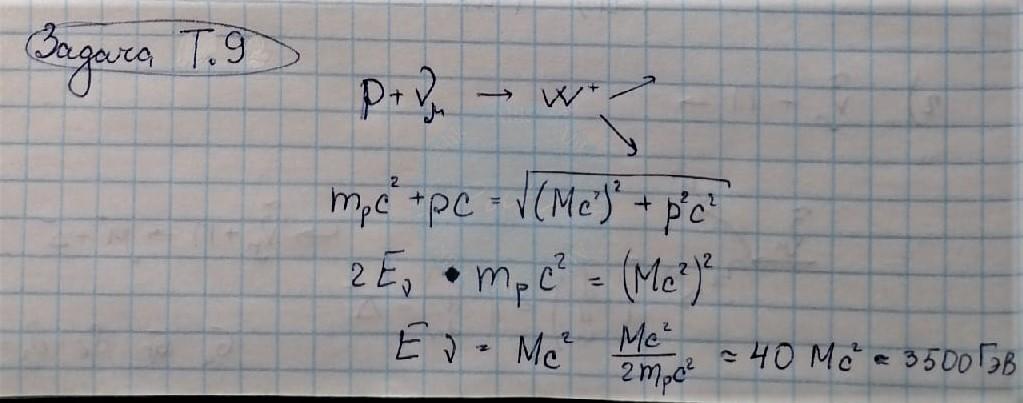 Задача Т.9
p + ν_μ → W⁺
m_p c² + pc = √((Mc²)² + p²c²)
2 E_ν • m_p c² = (Mc²)²
E ν = Mc² Mc²/2m_p c² = 40 Mc² = 3500 ГэВ